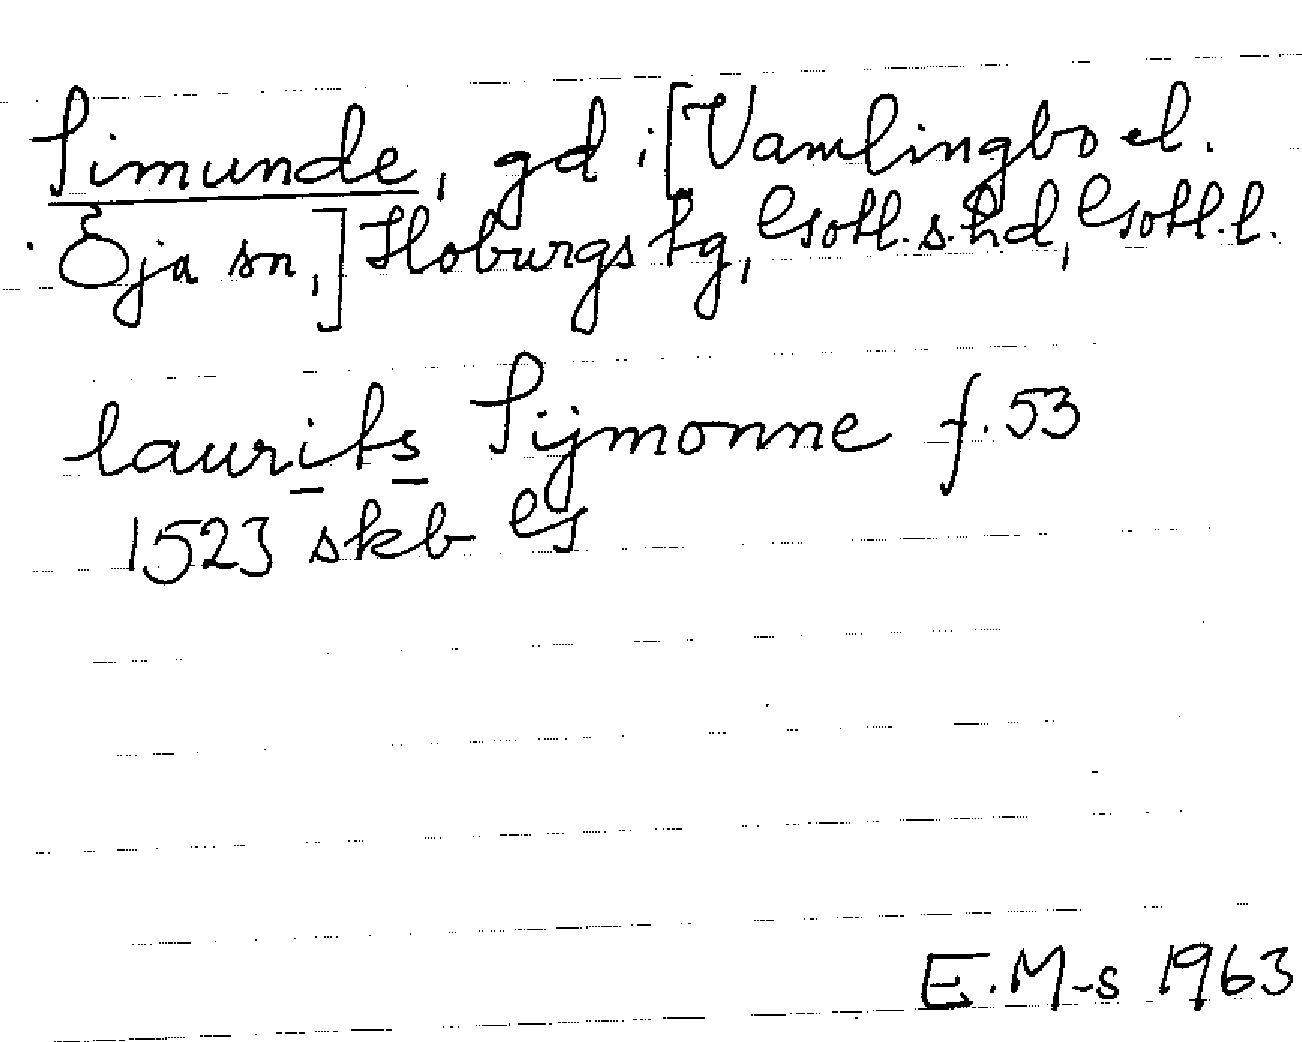 Simunde, gd i [Vamlingbo el.
Öja sn,] Hoburgs tg, Gotl. s. hd, Gotl. l.
laurits Sijmonne f. 53
1523 skb G
E. M-s 1963